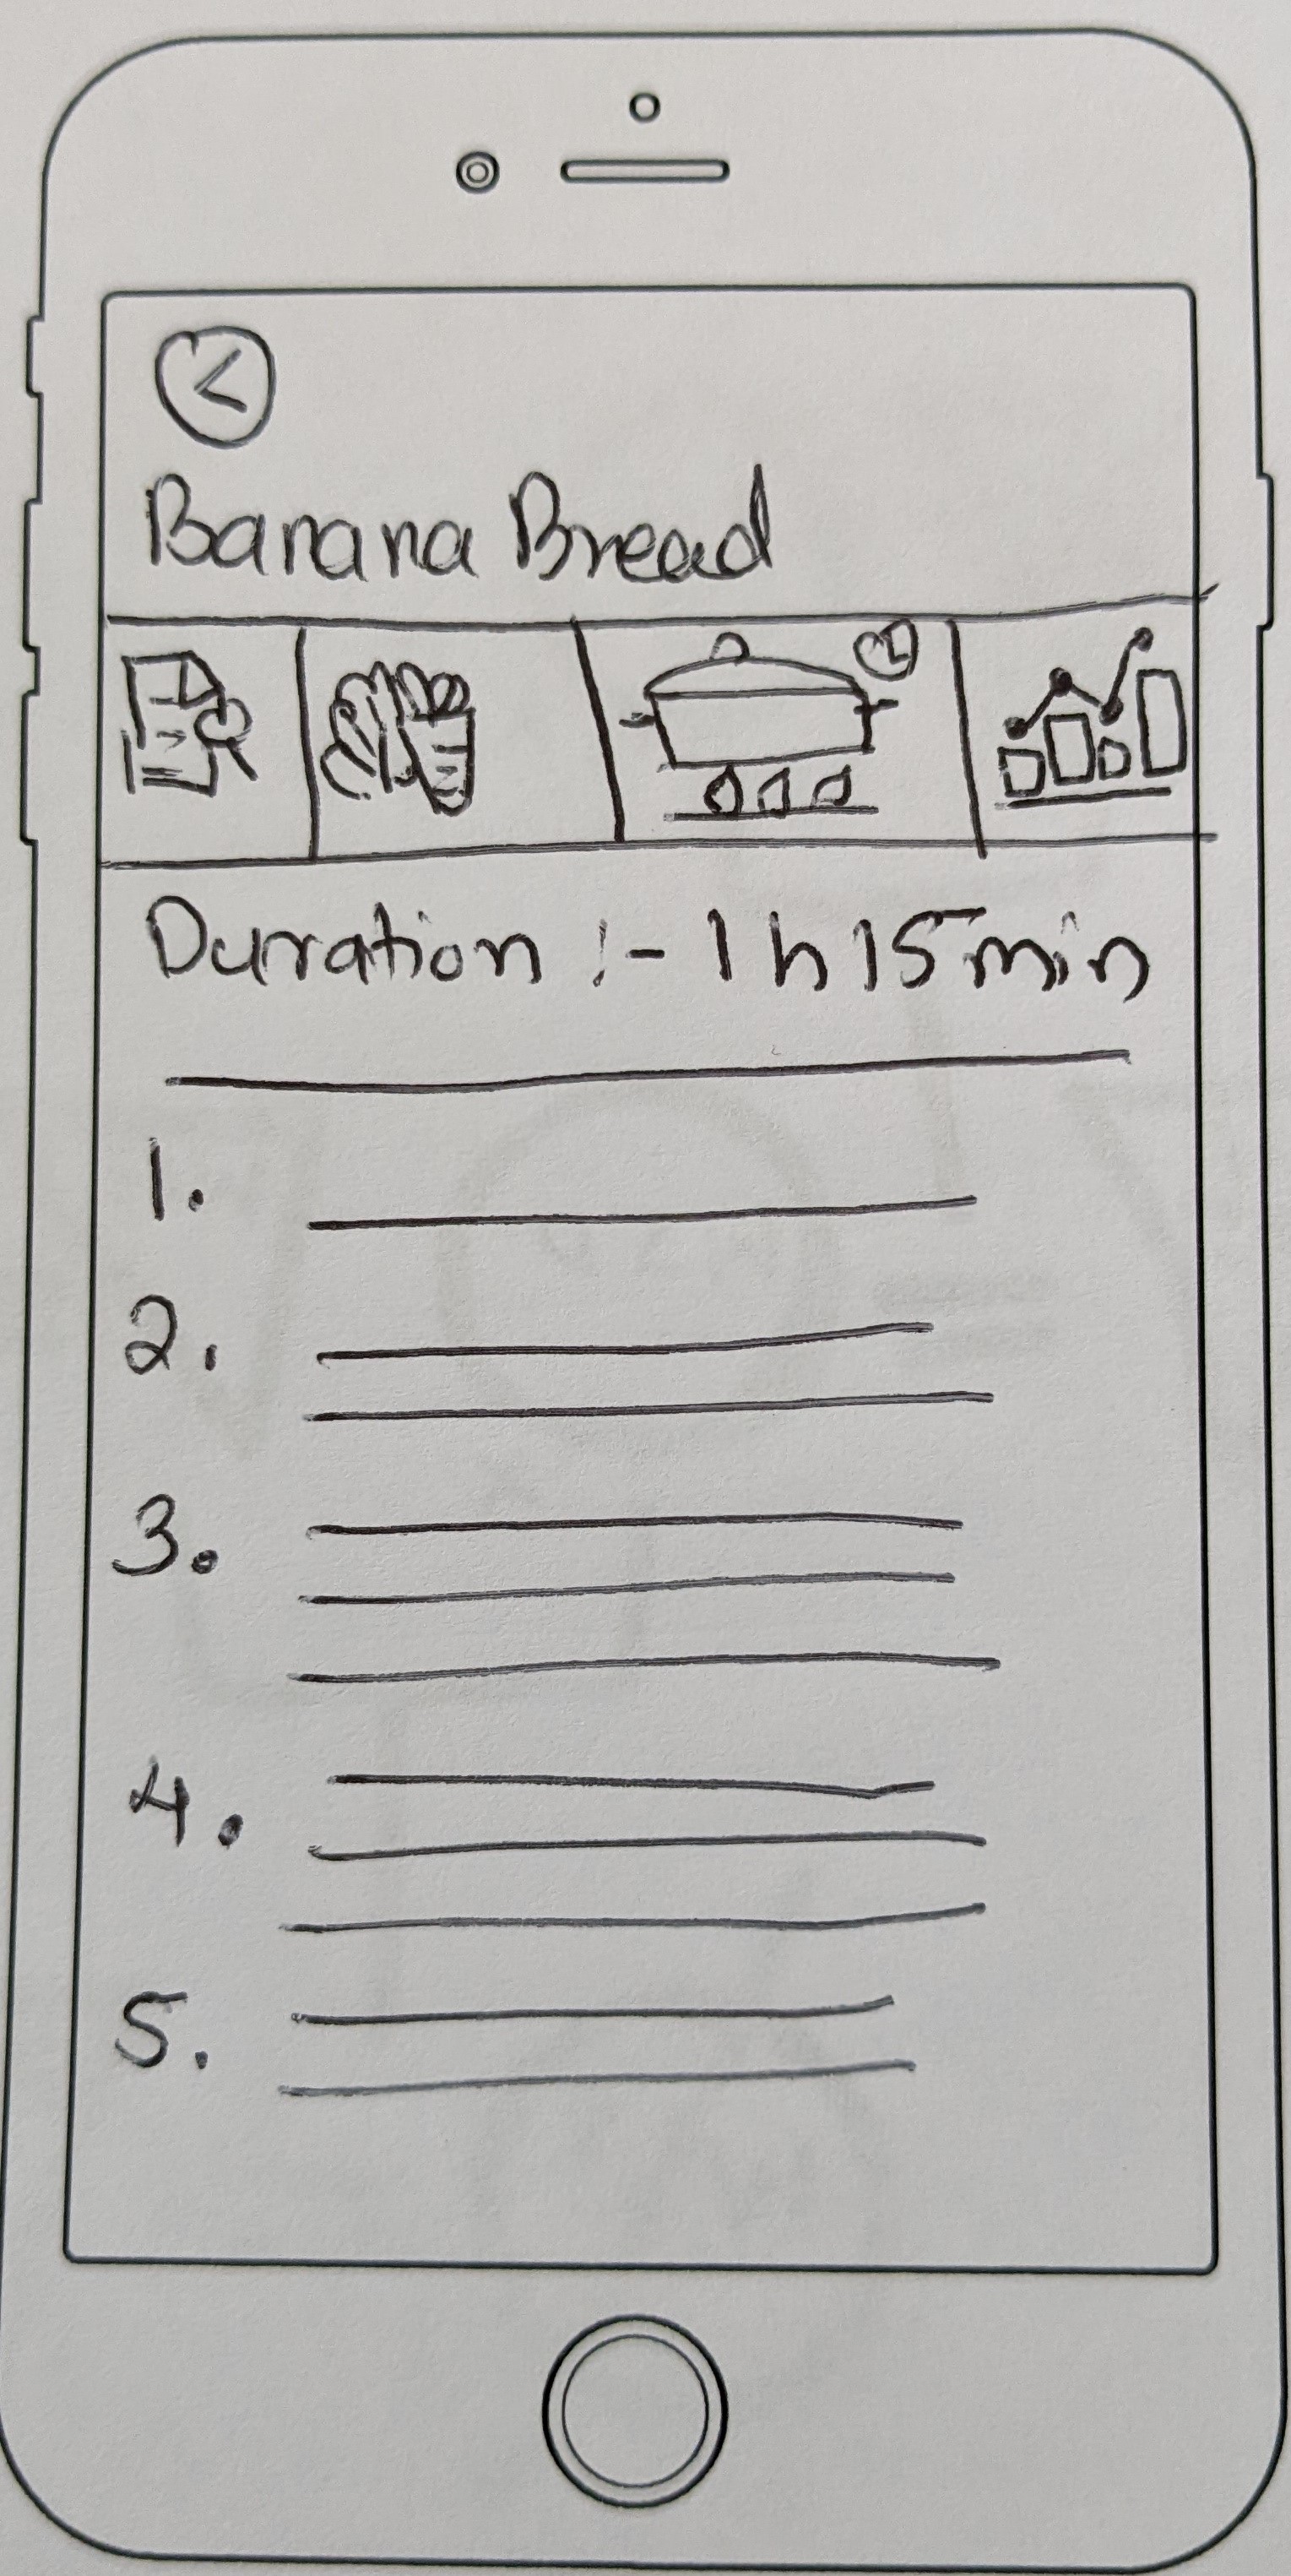 Banana Bread
Duration :- 1 h 15 min
1.
2.
3.
4.
5.